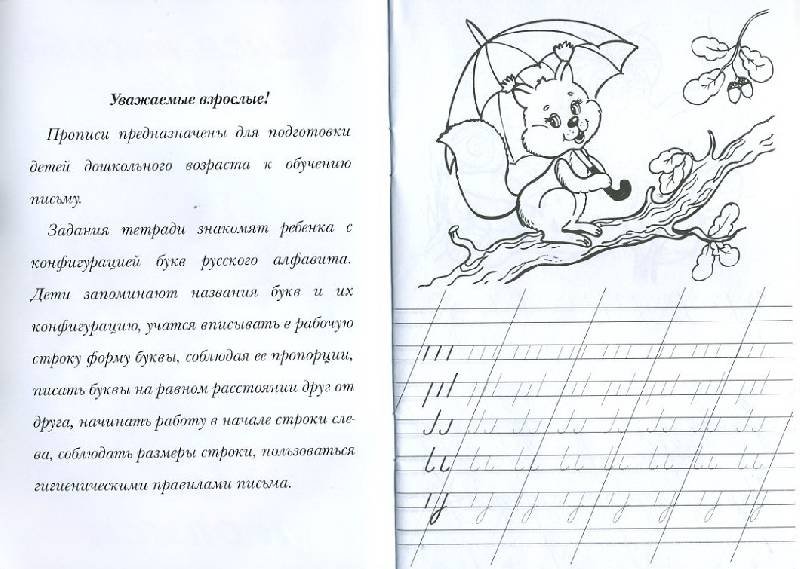 Уважаемые взрослые!
Прописи предназначены для подготовки
детей дошкольного возраста к обучению
письму.
Задания тетради знакомят ребенка с
конфигурацией букв русского алфавита.
Дети запоминают названия букв и их
конфигурацию, учатся вписывать в рабочую
строку форму буквы, соблюдая ее пропорции,
писать буквы на равном расстоянии друг от
друга, начинать работу в начале строки сле-
ва, соблюдать размеры строки, пользоваться
гигиеническими правилами письма.